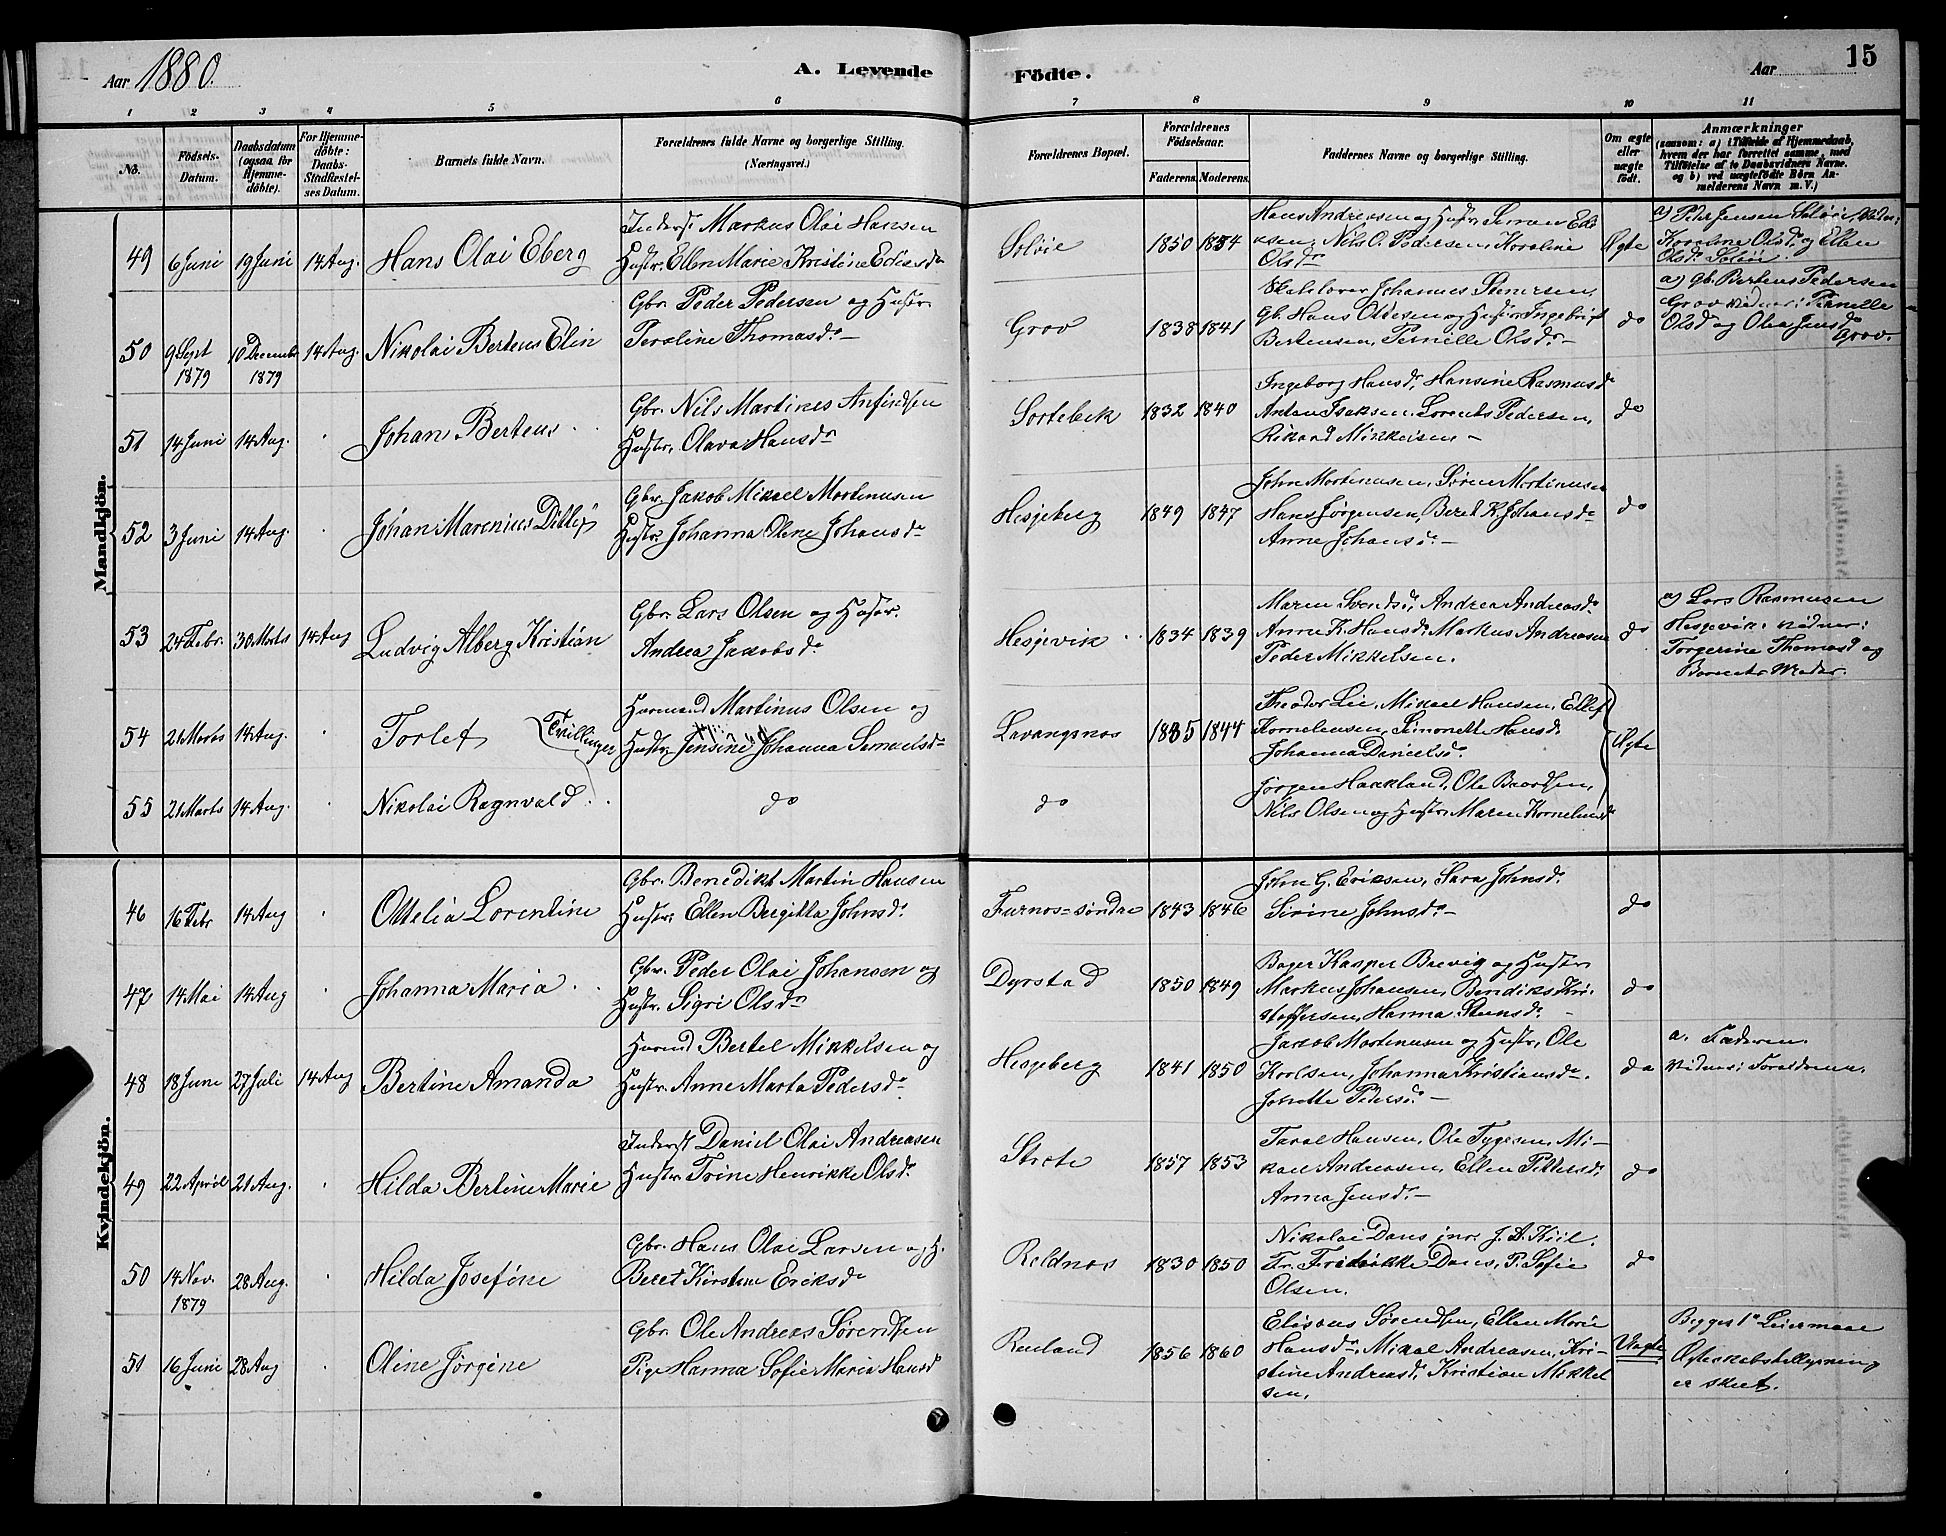 Aar 1880.
A. Levende Födte.
Aar
15
1 2 3 4 5 6 7 8 9 10 11
No.
Födsels-Datum.
Daabsdatum (ogsaa for Hjemmedöbte).
For Hjemmedöbte: Daabs-Stadfestelses Datum.
Barnets fulde Navn.
Forældrenes fulde Navne og borgerlige Stilling. (Næringsvei.)
Forældrenes Bopæl.
Forældrenes Födselsaar.
Faderens. Moderens.
Faddernes Navne og borgerlige Stilling.
Om ægte eller uægte födt.
Anmærkninger
(saasom: a) i Tilfælde af Hjemmedaab, hvem der har forrettet samme, med Tilföielse af to Daabsvidners Navne. og b) ved uægtefödte Börn Anmelderens Navn m. V.)
Mandkjön.
49 6 Juni 19 Juni 14 Aug. Hans Olai Eberg
Inderst Markus Olai Hansen
Hustr. Ellen Marie Kristine
Soløie 1850 1854
Hans Andreasen og Hustr.
Nils O. Pedersen, Karoline
Olsdr
Ægte
a) Peder Jensen Soløie,
Karoline Olsd. og Ellen
Olsdr. Soløie.
50 9 Sept 1879 10 Decemb 1879 14 Aug. Nikolai Berteus Elin
Gbr. Peder Pedersen og Hustr.
Peroline Thomasdr —
Grov 1838 1841
Johannes Stenersen,
Gb. Hans Oldesen og Hustr. Ingebrigt
Bertensen, Pernelle Olsdr —
do
a) Gb. Berteus Pedersen
Grov vidner: Pernelle
Olsd og Olea Jensdr
Grov.
51 14 Juni 14 Aug. Johan Berteus
Gbr. Nils Martines Anfindsen
Hustr. Olava Hansdr
Sortebek 1832 1840
Ingeborg Hansdr, Hansine Rasmusdr
Anton Isaksen, Lorents Pedersen,
Rikard Mikkelsen —
do
52 3 Juni 14 Aug. Johan Marenius Ditlef
Gbr. Jakob Mikael Mortinusen
Hustr. Johanna Olene Johansdr
Hesjeberg 1849 1847
John Mortinusen, Søren Mortinusen
Hans Jørgensen, Beret K. Johansdr
Anne Johansdr —
do
53 24 Febr. 30 Marts 14 Aug Ludvig Alberg Kristian
Gbr. Lars Olsen og Hustr.
Andrea Jakobsdr
Hesjevik 1834 1839
Maren Svendsd, Andrea Andreasdr
Anne K. Hansdr, Markus Andreasen
Peder Mikkelsen.
do
a) Lars Rasmusen
Hesjevik: vidner:
Torgerine Thomasd og
Barnets Moder.
54 21 Marts 14 Aug. Torlef Tvillinger
Huusmand Martinus Olsen og
Hustr. Jensine Johanna Samuelsdr
Lavangsnos 1835 1844
Theodor Lie, Mikael Hansen, Ellef
Kornelieusen, Simonette Hansd.
Johanna Danielsdr
Ægte
55 21 Marts 14 Aug. Nikolai Ragnvald
do
do
Jørgen Haakland, Ole Baardsen,
Nils Olsen og Hustr. Maren Korneliusdr
Kvindekjön.
46 16 Febr 14 Aug Ottelia Lorentine
Gbr. Benedikt Martin Hansen
Hustr. Ellen Bergitta Johnsdr
Furnos-søndre 1843 1846
John G. Eriksen, Sara Johnsdr
Sirine Johnsdr —
do
47 14 Mai 14 Aug Johanna Maria
Gbr. Peder Olai Johansen og
Hustr. Sigri Olsdr
Dyrstad 1850 1849
Bager Kasper Brevig og Hustr
Markus Johansen, Bendiks Kri-
stoffersen, Hanna Stensdr —
do
48 18 Juni 27 Juli 14 Aug Bertine Amanda
Husmd Bertel Mikkelsen og
Hustr. Anne Marta Pedersdr
Hesjeberg 1841 1850
Jakob Mortinusen og Hustr, Ole
Karlsen, Johanna Kristiansdr
Jonette Pedersdr —
do
a. Faderen.
Vidner: Forældrene.
49 22 April 21 Aug. Hilda Bertine Marie
Inderst Daniel Olai Andreasen
Hustr. Trine Henrikke Olsdr
Strote 1857 1853
Taral Hansen, Ole Tygesen, Mi-
kael Andreasen, Ellen Pedersdr
Anna Jensdr —
do
50 14 Nov. 1879 28 Aug. Hilda Josefine
Gbr. Hans Olai Larsen og H.
Beret Kirsten Eriksdr
Reldnos 1830 1850
Nikolai Dans jnr. J. A. Kiil.
Fr. Fredrikke Dans, P. Sofie
Olsen.
do
51 16 Juni 28 Aug Oline Jørgine
Gbr. Ole Andreas Sørendsen
Pige Hanna Sofie Maria Hansd
Renland 1856 1860
Elisæus Sørendsen, Ellen Marie
Hansdr, Mikal Andreasen, Kri-
stine Andreasdr, Kristian Mikkel
sen.
Uægte
Begges 1ste Leiermaal
Ægteskabstillysning
er skeet.